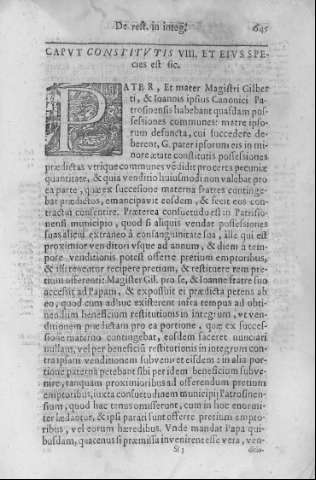 De rest. in integ.
645
CAPVT CONSTITVTIS VIII. ET EIVS SPE-
cies est sic.
PATER, Et mater Magistri Gilber
ti, & Ioannis ipsius Canonici Pa-
trosinensis habebant quasdam pos-
sessiones communes: matre ipso-
rum defuncta, cui succedere de-
berent, G. pater ipsorum eis in mi-
nore ætate constitutis possessiones
prædictas vtrique communes vēdidit pro certa pecuniæ
quantitate, & quia venditio huiusmodi non valebat pro
ea parte, quæ ex successione materna fratres continge-
bat prædictos, emancipauit eosdem, & fecit eos con-
tractui consentire. Præterea consuetudo est in Patrosi-
nensi municipio, quod si aliquis vendat possessiones
suas alicui extraneo à consanguinitate sua, ille qui est
proximior venditori vsque ad annum, & diem à tem-
pore venditionis potest offerre pretium emptoribus,
& isti tenentur recipere pretium, & restituere rem pre-
tium offerenti: Magister Gil. pro se, & Ioanne fratre suo
accessit ad Papam, & exposuit ei prædicta petens ab
eo, quod cum adhuc existerent infra tempus ad obti-
nendum beneficium restitutionis in integrum, vt ven-
ditionem prædictam pro ea portione, quæ ex succes-
sione materno contingebat, eosdem faceret nunciari
nullam, vel per beneficiū restitutionis in integrum con-
tra ipsam venditionem subuenir et eisdem: in alia por-
tione paterna petebant sibi per idem beneficium subue-
nire, tamquam proximioribus ad offerendum pretium
emptoribus, iuxta consuetudinem municipij Patrosinen-
sium, quod hac tenus omiserunt, cum in hoc enormi-
ter lædantur, & ipsi parati sunt offerre pretium empto-
ribus, vel eorum hæredibus. Vnde mandat Papa qui-
busdam, quatenus si præmissa inuenirent esse vera, ven-
ditio-